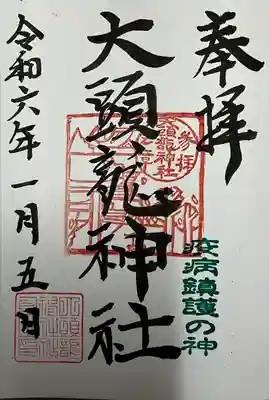 奉拝
疫病鎮護の神
参拝
大頭龍神社
大頭龍神社
令和六年一月五日